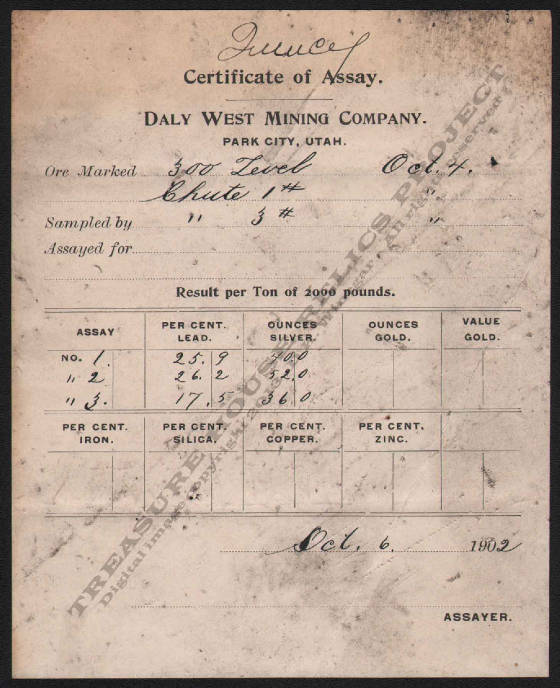 Quincy
Certificate of Assay.
DALY WEST MINING COMPANY.
PARK CITY, UTAH.
Ore Marked 300 Level Oct. 4.
Chute 1# "
Sampled by " 3# "
Assayed for
Result per Ton of 2000 pounds.
ASSAY PER CENT. LEAD. OUNCES SILVER. OUNCES GOLD. VALUE GOLD.
NO. 1. 25.9 40.0
" 2 26.2 52.0
" 3. 17.5 36.0
PER CENT. IRON. PER CENT. SILICA. PER CENT. COPPER. PER CENT. ZINC.
Oct. 6. 1902
ASSAYER.
TREASURE HOUSE RELICS PROJECT